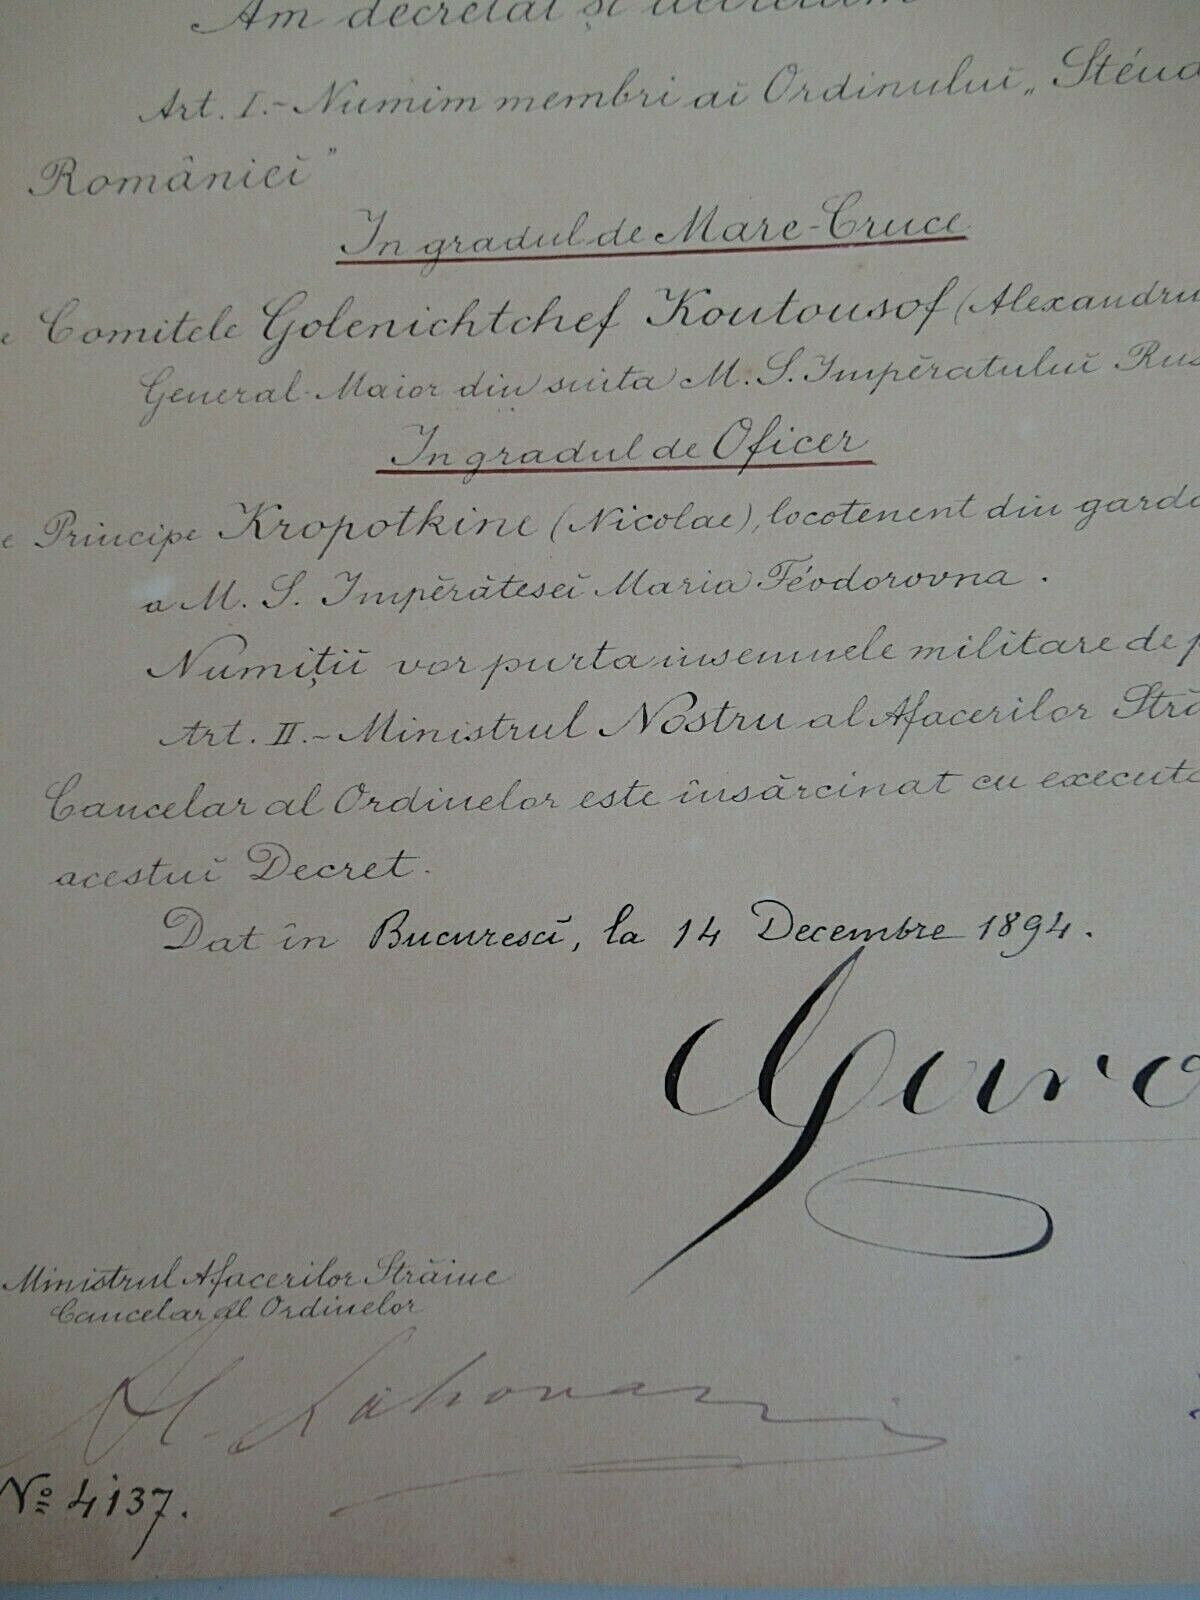 Am decretat și decretăm
Art. I.- Numim membri ai Ordinuluĭ „Stéua
Românieĭ"
In gradul de Mare-Cruce
Comitele Golenichtchef Koutousof (Alexandru
General-Maior din suita M. S. Impĕratuluĭ Rus
In gradul de Oficer
Principe Kropotkine (Nicolae), locotenent din garda
a M. S. Impĕrăteseĭ Maria Féodorovna.
Numițiĭ vor purta insemnele militare de p
Art. II.- Ministrul Nostru al Afacerilor Stră
Cancelar al Ordinelor este însărcinat cu execute
acestuĭ Decret.
Dat în Bucurescĭ, la 14 Decembre 1894.
Caro
Ministrul Afacerilor Străine
Cancelar al Ordinelor
Al. Lahovari
Nº 4137.